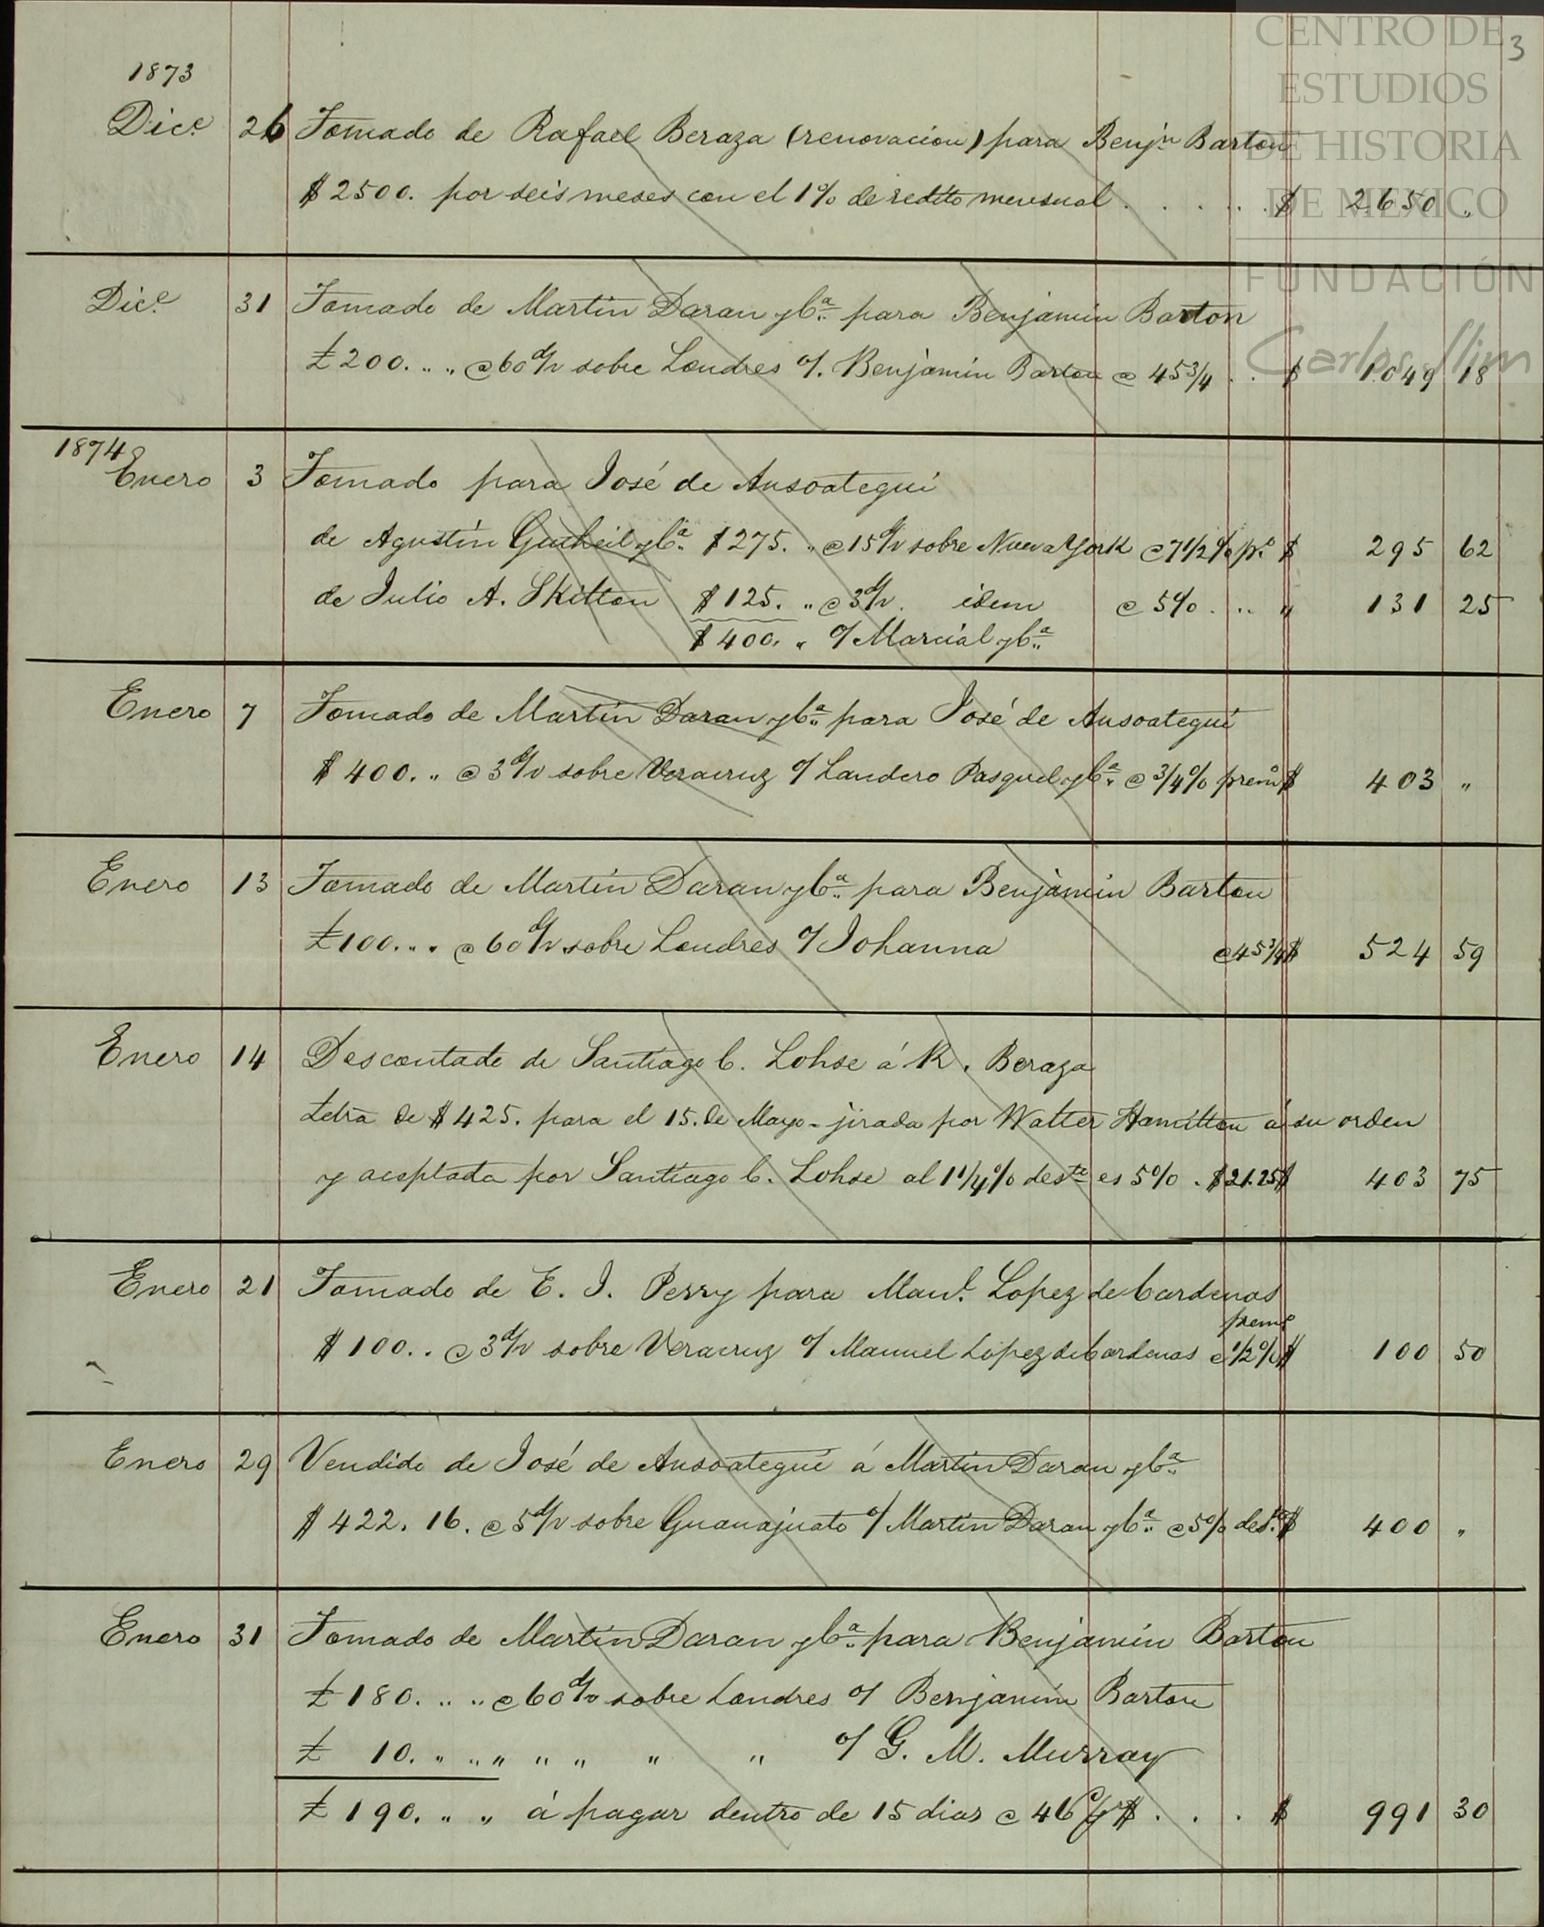 CENTRO DE
ESTUDIOS
DE HISTORIA
DE MEXICO
FUNDACIÓN
Carlos Slim
3
1873
Dice. 26 Tomado de Rafael Beraza (renovacion) para Benjn Barton
$2500. por seis meses con el 1% de redito mensual . . . . . . $ 2.650 "
Dice. 31 Tomado de Martin Daran y Ca. para Benjamin Barton
£200. " " @ 60 d/v sobre Londres o/. Benjamin Barton @ 45 3/4 . . $ 1.049 18
1874
Enero 3 Tomado para José de Ansoategui
de Agustin Gutheil y Ca. $275. " @ 15 d/v sobre Nueva York @ 7 1/2 % po. $ 295 62
de Julio A. Skilton $125. " @ 3 d/v. idem @ 5% . . . " 131 25
$400. " o/ Marcial y Ca.
Enero 7 Tomado de Martin Daran y Ca. para José de Ansoategui
$400. " @ 3 d/v sobre Veracruz o/ Landero Pasquel y Ca. @ 3/4 % premo $ 403 "
Enero 13 Tomado de Martin Daran y Ca. para Benjamin Barton
£100. " " @ 60 d/v sobre Londres o/ Johanna @ 45 3/4 $ 524 59
Enero 14 Descontado de Santiago C. Lohse á R. Beraza
Letra de $425. para el 15. de Mayo - jirada por Walter Hamilton á su orden
y aceptada por Santiago C. Lohse al 1 1/4 % desto es 5% . $21.25 $ 403 75
Enero 21 Tomado de E. J. Perry para Manl. Lopez de Cardenas
premo
$100. . @ 3 d/v sobre Veracruz o/ Manuel Lopez de Cardenas @ 1/2 % $ 100 50
Enero 29 Vendido de José de Ansoategui á Martin Daran y Ca.
$422. 16. @ 5 d/v sobre Guanajuato o/ Martin Daran y Ca. @ 5% desto. $ 400 "
Enero 31 Tomado de Martin Daran y Ca. para Benjamin Barton
£180. " " @ 60 d/v sobre Londres o/ Benjamin Barton
£ 10. " " " " " " " o/ G. M. Murray
£190. " " á pagar dentro de 15 dias @ 46 p $ . . . $ 991 30